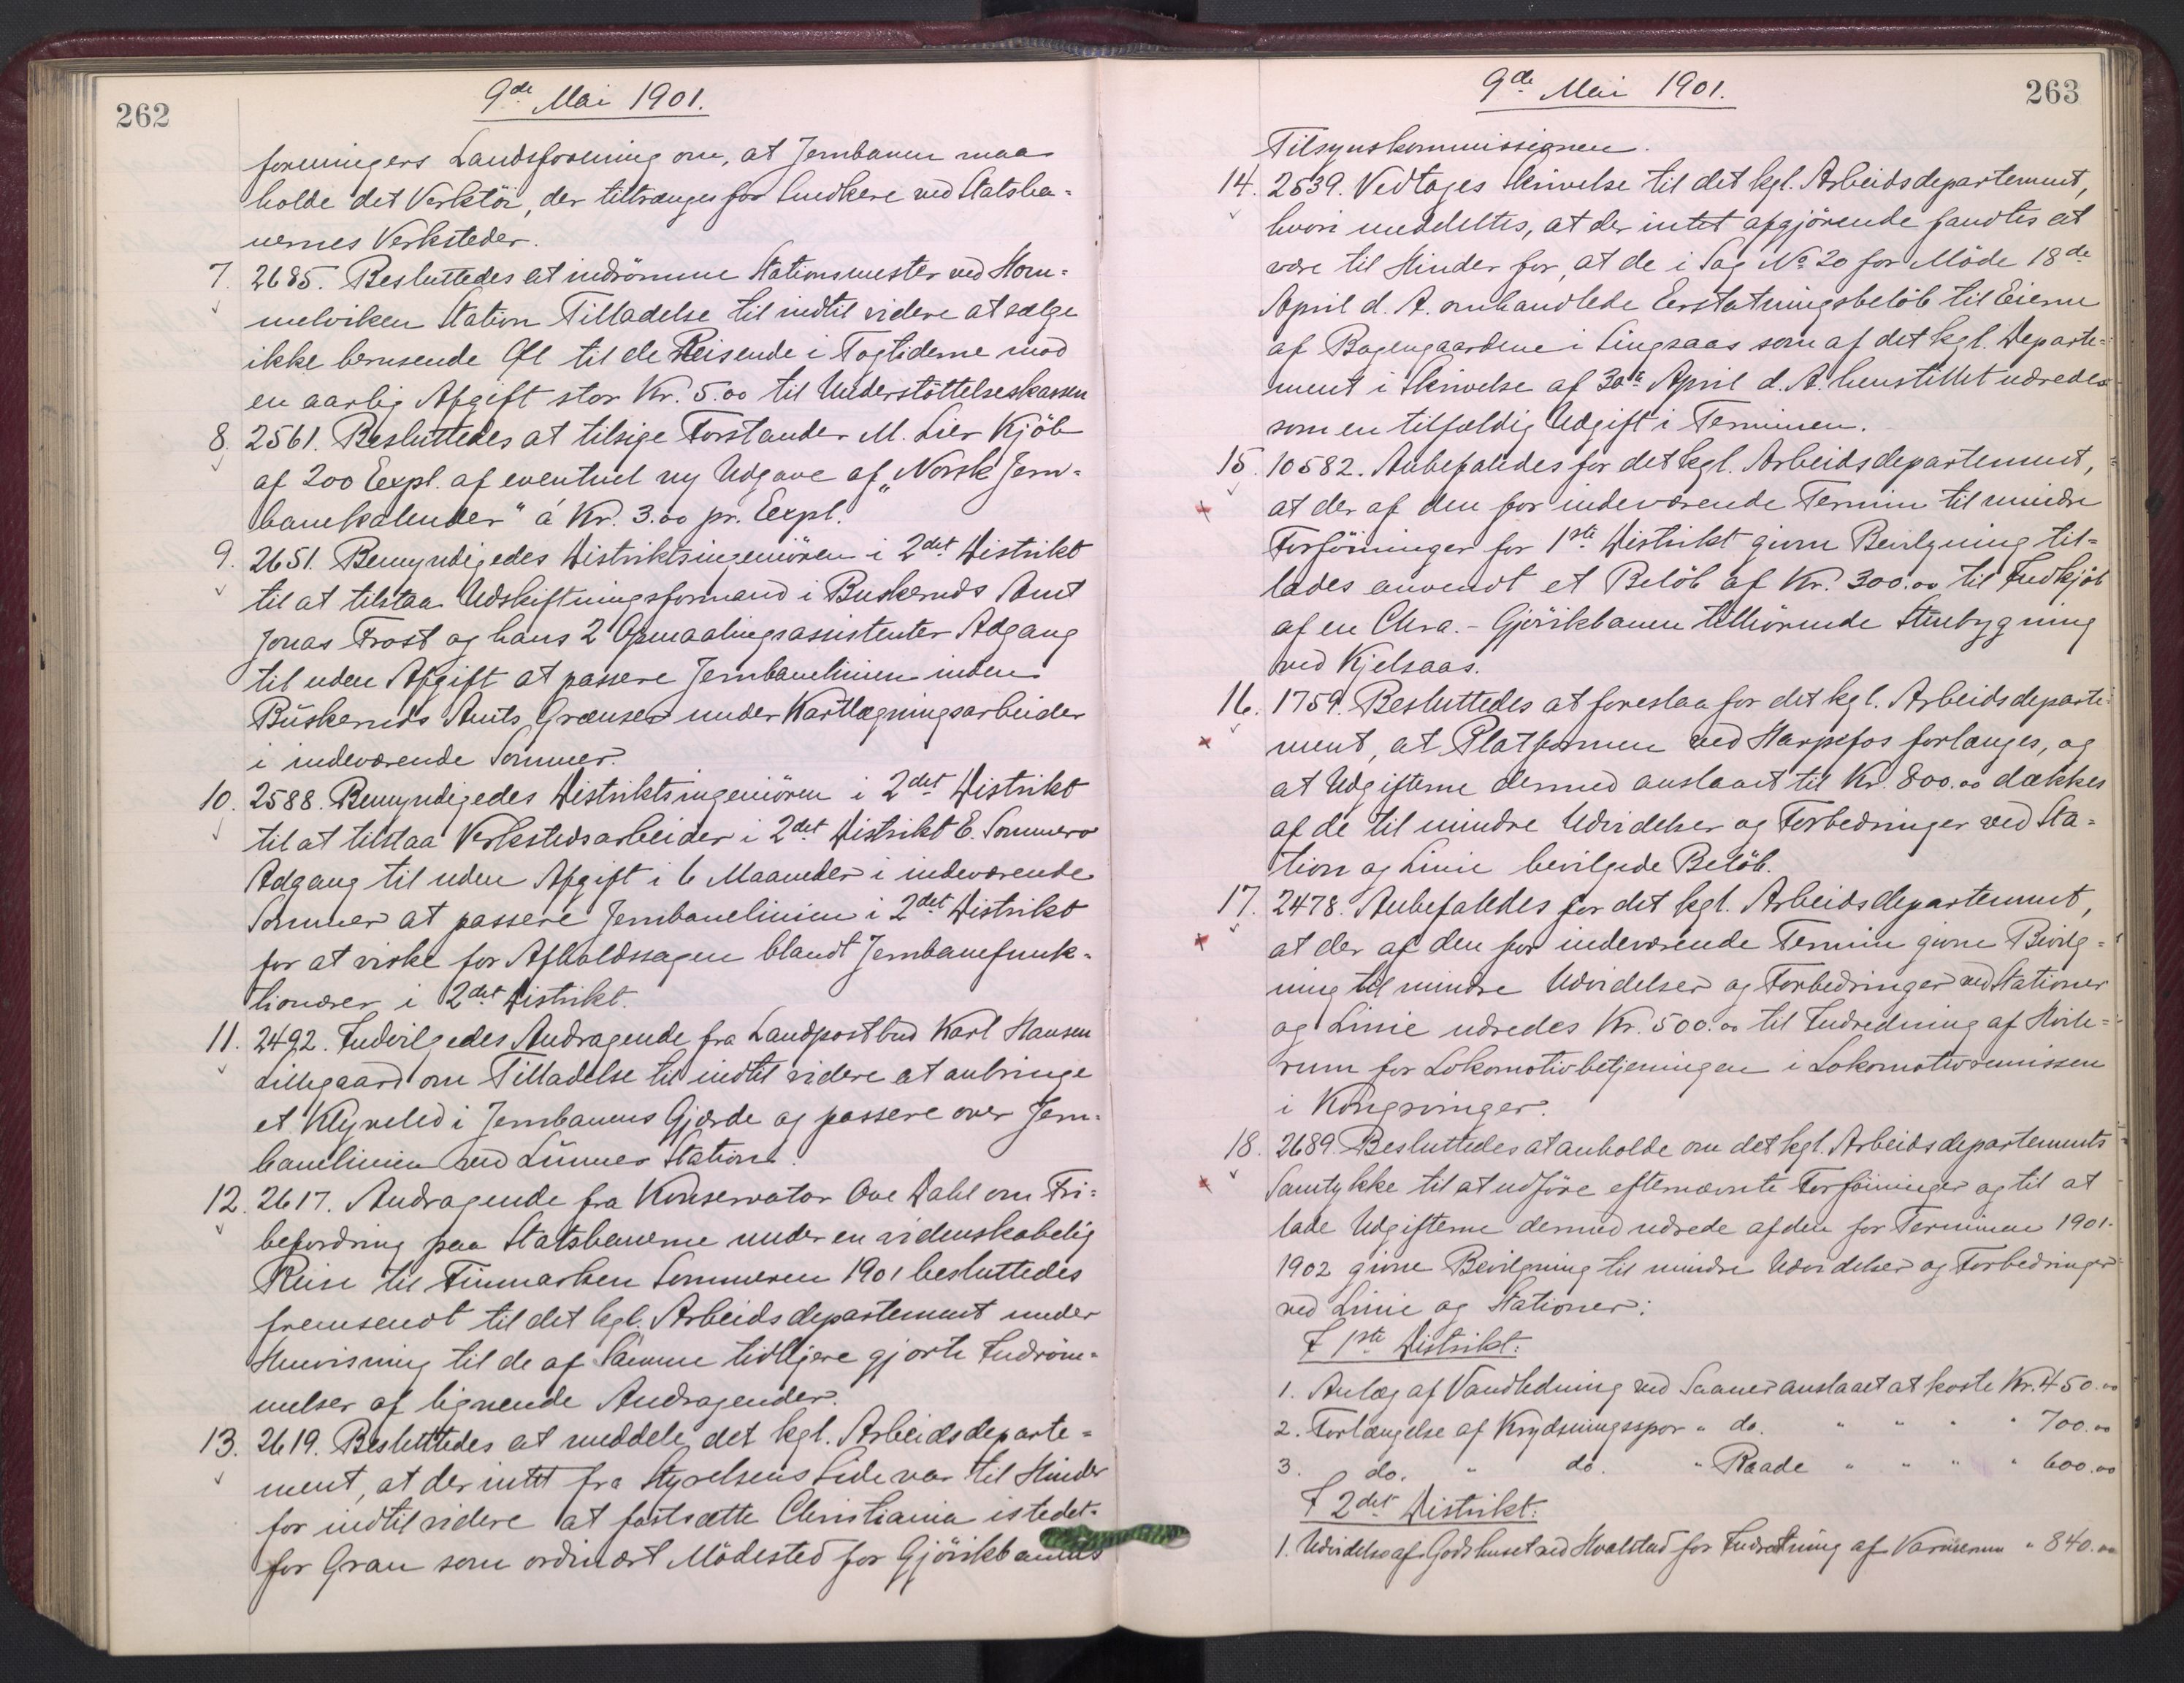 262
9de Mai 1901.
foreningers Landsforening om, at Jernbanen maa
holde det Verktöi, der tiltrænges for Snedkere ved Statsba-
nernes Verksteder.
7. 2685. Besluttedes at indrömme Stationsmester ved Hom-
melviken Station Tilladelse til indtil videre at sælge
ikke berusende Öl til de Reisende i Togtiderne mod
en aarlig Afgift stor Kr. 5.00 til Understöttelseskassen
8. 2561. Besluttedes at tilsige Forstander M. Lier Kjöb
af 200 Expl. af eventuel ny Udgave af „Norsk Jern-
banekalender" á Kr. 3.00 pr. Expl.
9. 2651. Bemyndigedes Distriktsingeniören i 2det Distrikt
til at tilstaa Udskiftningsformand i Buskeruds Amt
Jonas Frost og hans 2 Opmaalingsassistenter Adgang
til uden Afgift at passere Jernbanelinien inden
Buskeruds Amts Grænser under Kartlægningsarbeider
i indeværende Sommer.
10. 2588. Bemyndigedes Distriktsingeniören i 2det Distrikt
til at tilstaa Verkstedsarbeider i 2det Distrikt E. Sommero
Adgang til uden Afgift i 6 Maaneder i indeværende
Sommer at passere Jernbanelinien i 2det Distrikt
for at virke for Afholdssagen blandt Jernbanefunk-
tionærer i 2det Distrikt.
11. 2492. Indvilgedes Andragende fra Landpostbud Karl Hansen
Lillegaard om Tilladelse til indtil videre at anbringe
et Klyveled i Jernbanens Gjærde og passere over Jern-
banelinien ved Lunner Station.
12. 2617. Andragende fra Konservator Ove Dahl om Fri-
befordring paa Statsbanerne under en videnskabelig
Reise til Finmarken Sommeren 1901 besluttedes
fremsendt til det kgl. Arbeidsdepartement under
Henvisning til de af Samme tidligere gjorte Indröm-
melser af lignende Andragender.
13. 2619. Besluttedes at meddele det kgl. Arbeidsdeparte-
ment, at der intet fra Styrelsens Side var til Hinder
for indtil videre at fastsætte Christiania istedet-
for Gran som ordinært Mödested for Gjövikbanens
263
9de Mai 1901.
Tilsynskommissionen.
14. 2639. Vedtoges Skrivelse til det kgl. Arbeidsdepartement,
hvori meddeltes, at der intet afgjörende fandtes at
være til Hinder for, at de i Sag No 20 for Möde 18de
April d. A. omhandlede Erstatningsbelöb til Eierne
af Bogengaardene i Singsaas som af det kgl. Departe-
ment i Skrivelse af 30te April d. A. henstillet udredes
som en tilfældig Udgift i Terminen.
15. 10582. Anbefaledes for det kgl. Arbeidsdepartement,
at der af den for indeværende Termin til mindre
Forföininger for 1ste Distrikt givne Bevilgning til-
lades anvendt et Belöb af Kr. 300.00 til Indkjöb
af en Chra.-Gjövikbanen tilhörende Stenbygning
ved Kjelsaas.
16. 1759. Besluttedes at foreslaa for det kgl. Arbeidsdeparte-
ment, at Platformen ved Harpefos forlænges, og
at Udgifterne dermed anslaaet til Kr. 800.00 dækkes
af de til mindre Udvidelser og Forbedringer ved Sta-
tion og Linie bevilgede Belöb.
17. 2478. Anbefaledes for det kgl. Arbeidsdepartement,
at der af den for indeværende Termin givne Bevilg-
ning til mindre Udvidelser og Forbedringer ved Stationer
og Linie udredes Kr. 500.00 til Indredning af Hvile-
rum for Lokomotivbetjeningen i Lokomotivremissen
i Kongsvinger.
18. 2689. Besluttedes at anholde om det kgl. Arbeidsdepartements
Samtykke til at udföre efternævnte Forföininger og til at
lade Udgifterne dermed udrede af den for Terminen 1901-
1902 givne Bevilgning til mindre Udvidelser og Forbedringer
ved Linie og Stationer:
I 1ste Distrikt:
1. Anlæg af Vandledning ved Saaner anslaaet at koste Kr. 450.00
2. Forlængelse af Krydsningsspor " do. " " " " 700.00
3. do. " do. " Raade " " " " 600.00
I 2det Distrikt:
1. Udvidelse af Godshuset ved Hvalstad for Indretning af Varmerum " 840.00